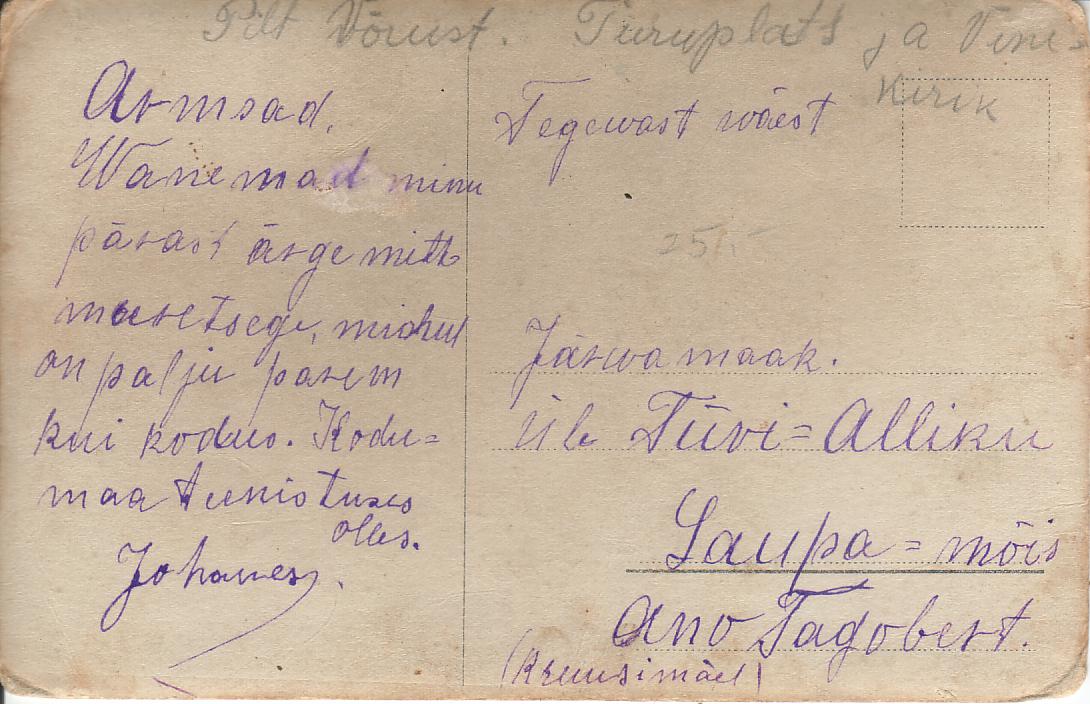 Pilt Võrust. Turuplats ja Vene
kirik
Armsad.
Wanemad minu
pärast ärge mitte
muretsege, minul
on palju parem
kui kodus. Kodu=
maa teenistuses
olles.
Johanes.
Tegewast wäest
25
Järwamaak.
Üle Türi=Alliku
Laupa=mõis
Ano Tagobert.
(Kruusimäel)